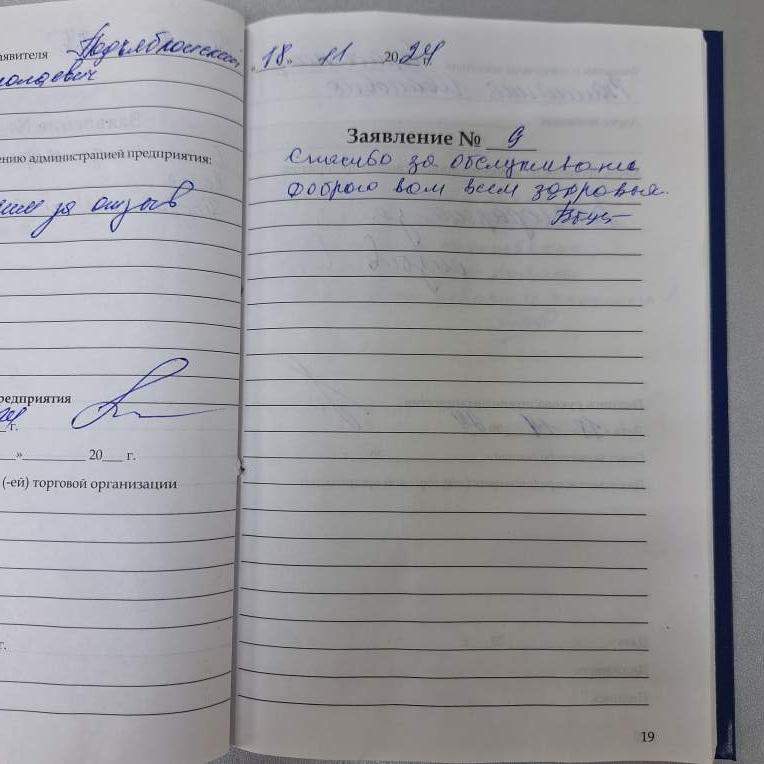 аявителя Подъяблонский
колаевич
ению администрацией предприятия:
за отзыв
редприятия
г.
» 20 г.
(-ей) торговой организации
г.
„18" 11 2024
Заявление № 9
Спасибо за обслуживание
Доброго вам всем здоровья.
19